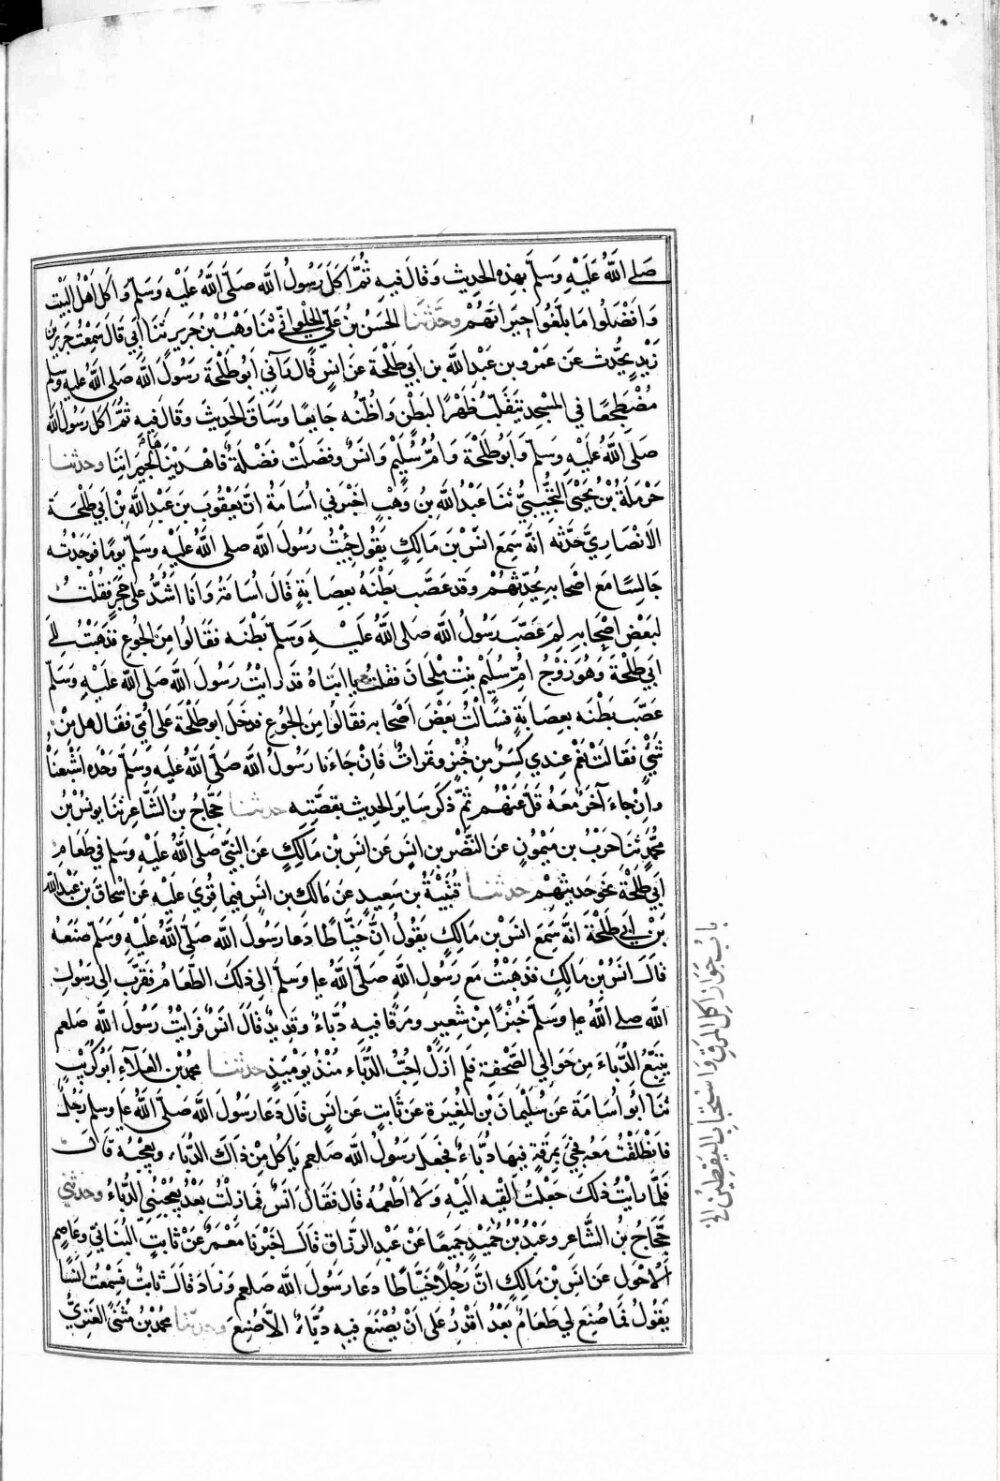 صلى الله عليه وسلم بهذه الحديث وقال فيه ثم اكل رسول الله صلى الله عليه وسلم واكل اهل البيت
وافضلوا ما بلغوا جيرانهم وحدثنا الحسن بن علي الحلواني ثنا وهب بن جرير ثنا ابي قال سمعت جرير بن
زيد يحدث عن عمرو بن عبد الله بن ابي طلحة عن انس قال رآني ابو طلحة رسول الله صلى الله عليه وسلم
مضطجعا في المسجد يتقلب ظهرا لبطن واظنه جايعا وساق الحديث وقال فيه ثم اكل رسول الله
صلى الله عليه وسلم وابو طلحة وام سليم وانس وفضلت فضلة فاهديناها لجيراننا وحدثنا
حرملة بن يحيى التجيبي ثنا عبد الله بن وهب اخبرني اسامة ان يعقوب بن عبد الله بن ابي طلحة
الانصاري حدثه انه سمع انس بن مالك يقول جئت رسول الله صلى الله عليه وسلم يوما فوجدته
جالسا مع اصحابه يحدثهم وقد عصب بطنه بعصابة قال اسامة وانا اشد على حجر فقلت
لبعض اصحابه لم عصب رسول الله صلى الله عليه وسلم بطنه فقالوا من الجوع فذهبت الى
ابي طلحة وهو زوج ام سليم بنت ملحان فقلت يا ابتاه قد رايت رسول الله صلى الله عليه وسلم
عصب بطنه بعصابة فسالت بعض اصحابه فقالوا من الجوع فدخل ابو طلحة على امي فقال هل من
شيء فقالت نعم عندي كسر من خبز وتمرات فان جاءنا رسول الله صلى الله عليه وسلم وحده اشبعناه
وان جاء آخر معه قل عنهم ثم ذكر ساير الحديث بقصته حدثنا حجاج بن الشاعر ثنا يونس بن
محمد ثنا حرب بن ميمون عن النضر بن انس عن انس بن مالك عن النبي صلى الله عليه وسلم في طعام
ابي طلحة نحو حديثهم حدثنا قتيبة بن سعيد عن مالك بن انس فيما قرئ عليه عن اسحاق بن عبد الله
بن ابي طلحة انه سمع انس بن مالك يقول ان خياطا دعا رسول الله صلى الله عليه وسلم صنعه
قال انس بن مالك فذهبت مع رسول الله صلى الله عليه وسلم الى ذلك الطعام فقرب الى رسول
الله صلى الله عليه وسلم خبزا من شعير ومرقا فيه دباء وقديد قال انس فرايت رسول الله صلعم
يتتبع الدباء من حوالي الصحفة فلم ازل احب الدباء منذ يوميذ حدثنا محمد بن العلاء ابو كريب
ثنا ابو اسامة عن سليمان بن المغيرة عن ثابت عن انس قال دعا رسول الله صلى الله عليه وسلم رجل
فانطلقت معه فجئ بمرقة فيها دباء فجعل رسول الله صلعم ياكل من ذاك الدباء ويعجبه قال
فلما رايت ذلك جعلت القيه اليه ولا اطعمه قال فقال انس فما زلت بعد يعجبني الدباء وحدثني
حجاج بن الشاعر وعبد بن حميد جميعا عن عبد الرزاق قال اخبرنا معمر عن ثابت البناني وعاصم
الاحول عن انس بن مالك ان رجلا خياطا دعا رسول الله صلعم وزاد قال ثابت فسمعت انسا
يقول فما صنع لي طعام بعد اقدر على ان يصنع فيه دباء الا صنع وحدثنا محمد بن مثنى العنزي
باب جواز اكل المرق واستحباب اليقطين الخ